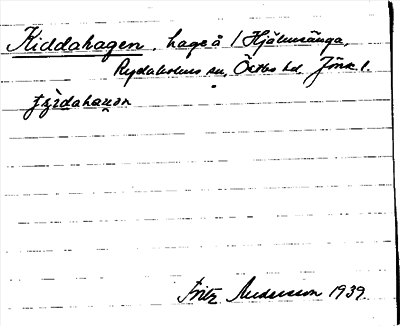 Kiddahagen, hage å 1 Hjälmsänga,
Rydaholms sn, Östbo hd, Jönk. l.
Fritz Andersson 1939.